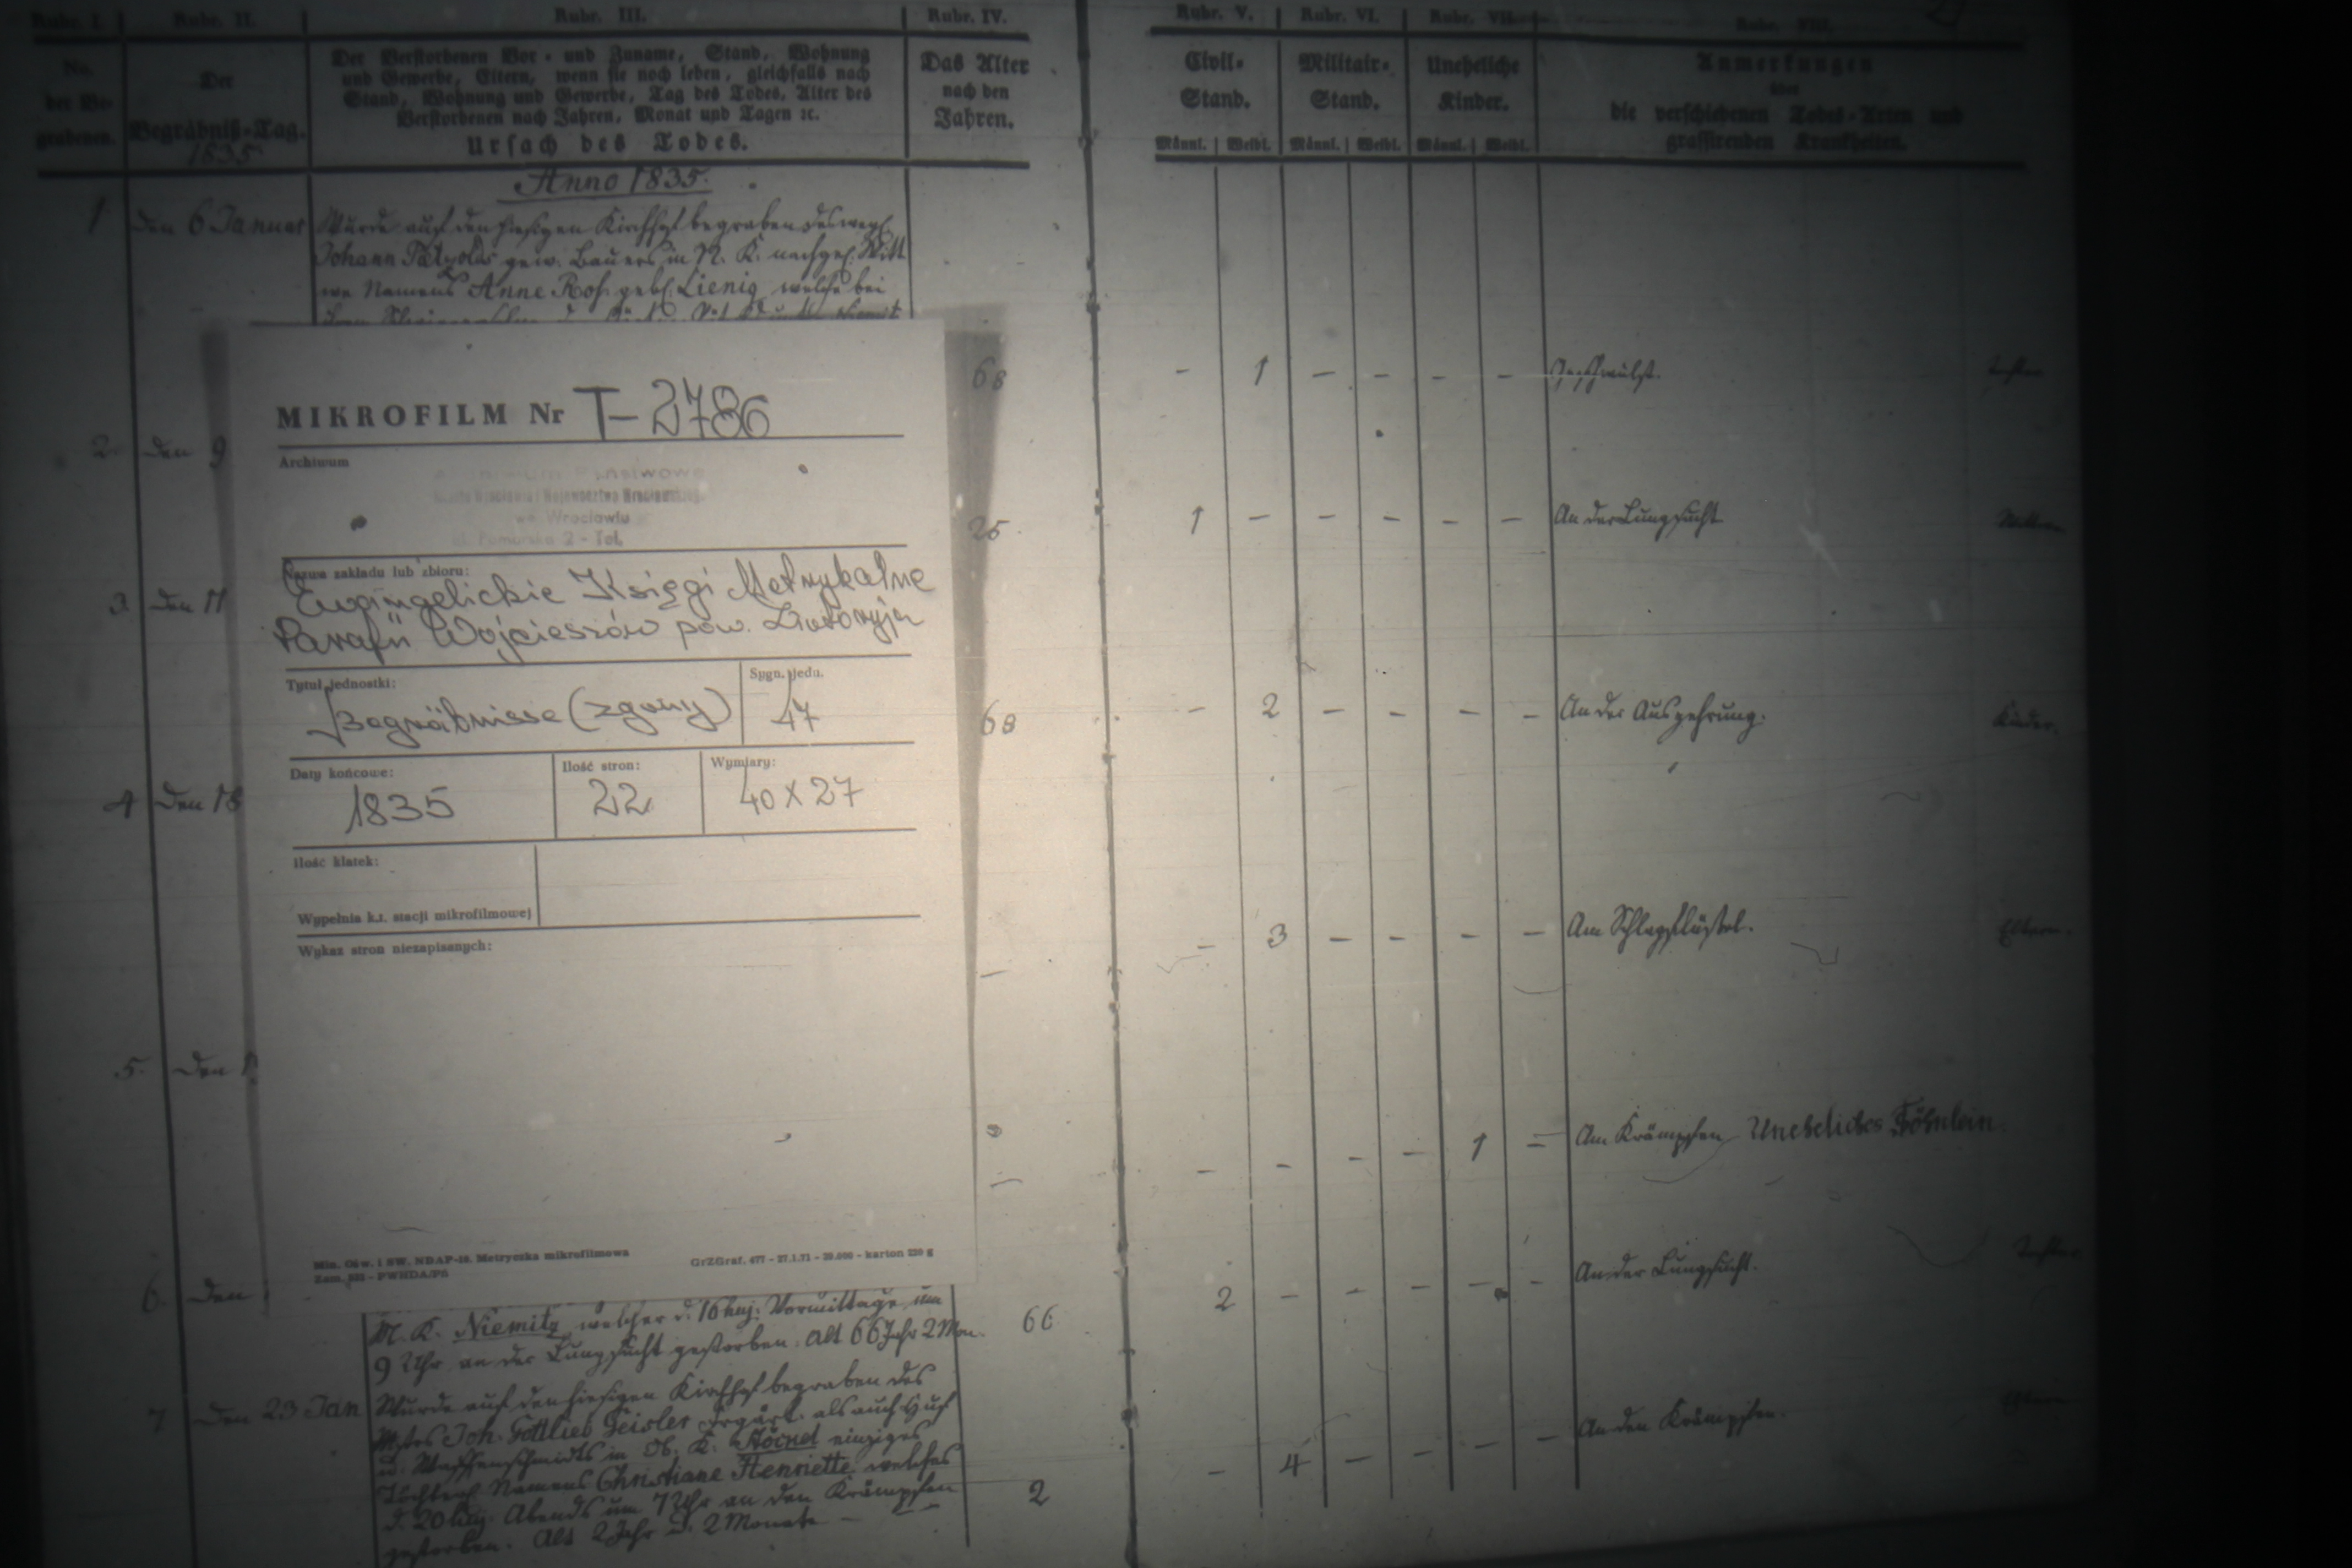 Rubr. I.
Rubr. II.
Rubr. III.
Rubr. IV.
Rubr. V.
Rubr. VI.
Rubr. VII.
Rubr. VIII.
No.
der Be-
grabenen.
Der
Begräbniß-Tag.
1835
Der Verstorbenen Vor- und Zuname, Stand, Wohnung
und Gewerbe, Eltern, wenn sie noch leben, gleichfalls nach
Stand, Wohnung und Gewerbe, Tag des Todes, Alter des
Verstorbenen nach Jahren, Monat und Tagen ꝛc.
Ursach des Todes.
Das Alter
nach den
Jahren.
Civil-
Stand.
Militair-
Stand.
Uneheliche
Kinder.
Männl. | Weibl.
Männl. | Weibl.
Männl. | Weibl.
Anmerkungen
über
die verschiedenen Todes-Arten und
grassirenden Krankheiten.
Anno 1835.
1 den 6 Januar Wurde auf den hiesigen Kirchhof begraben des weyl.
Johann gew. Bauers in N. K. nachgel. Witt
we Namens Anne Ros. geb. Lienig welche bei
68 - 1 - - - - Geschwulst.
2. den 9
25. 1 - - - - - An der Lungsucht
3. den 11
68 - 2 - - - - An der Auszehrung. Kinder.
4 den 18
- 3 - - - - Am Schlagflüssel. Eltern.
5. den
- - - - 1 - Am Krämpfen Uneheliches Söhnlein.
6. den
2 - - - - - An der Lungsucht.
MIKROFILM Nr T-2786
Archiwum
Archiwum Państwowe
Miasta Wrocławia i Województwa Wrocławskiego
we Wrocławiu
ul. Pomorska 2 - Tel.
Nazwa zakładu lub zbioru:
Ewangelickie Księgi Metrykalne
Parafii Wojcieszów pow. Złotoryja
Tytuł jednostki:
Begräbnisse (zgony)
Sygn. jedn.
47
Daty końcowe:
1835
Ilość stron:
22
Wymiary:
40 X 27
Ilość klatek:
Wypełnia k.t. stacji mikrofilmowej
Wykaz stron niezapisanych:
Min. Ośw. i SW. NDAP-18. Metryczka mikrofilmowa
GrZGraf. 477 - 27.1.71 - 20.000 - karton 220 g
M. K. Niemitz welcher d. 16 huj. Vormittags um
9 Uhr an der Lungsucht gestorben. Alt 66 Jahr 2 Mon.
66
7 den 23 Jan Wurde auf den hiesigen Kirchhof begraben des
Joh. Gottlieb Geisler als auch Huf
u. Waffenschmidts in Ob. K. einziges
Töchterl. Namens Christiane Henriette welches
d. 20 huj. Abends um 7 Uhr an den Krämpfen
gestorben. Alt 2 Jahr u. 2 Monate -
2 - 4 - - - - An den Krämpfen.